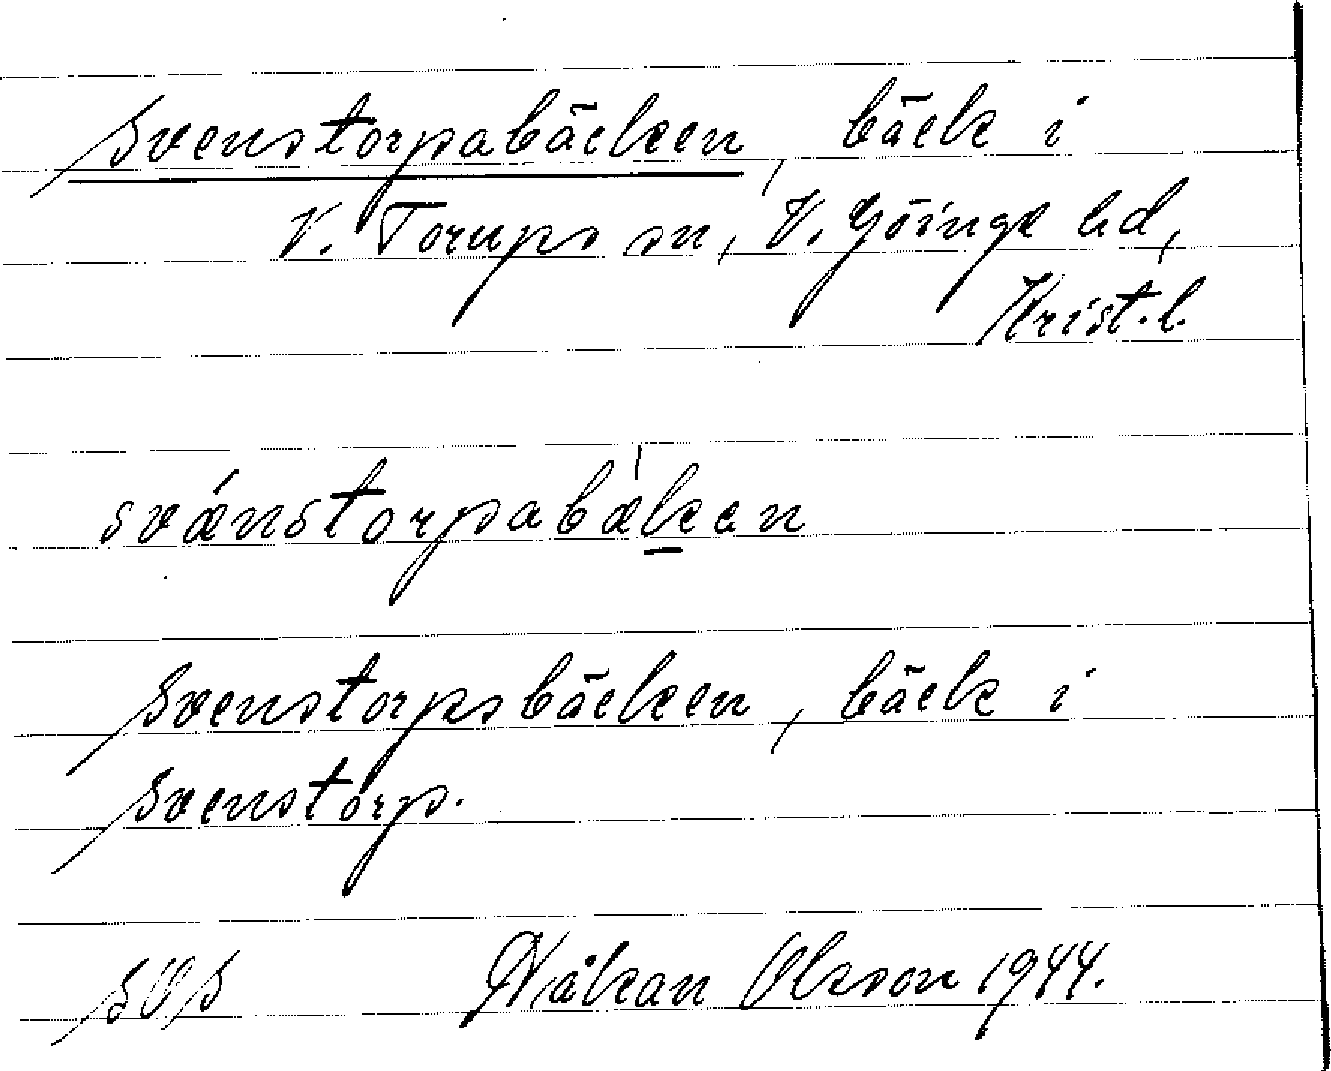 Svenstorpabäcken, bäck i
V. Torups sn, V. Göinge hd,
Krist. l.
svǽnstorpabækan
Svenstorpsbäcken, bäck i
Svenstorp.
SOS Håkan Olsson 1944.